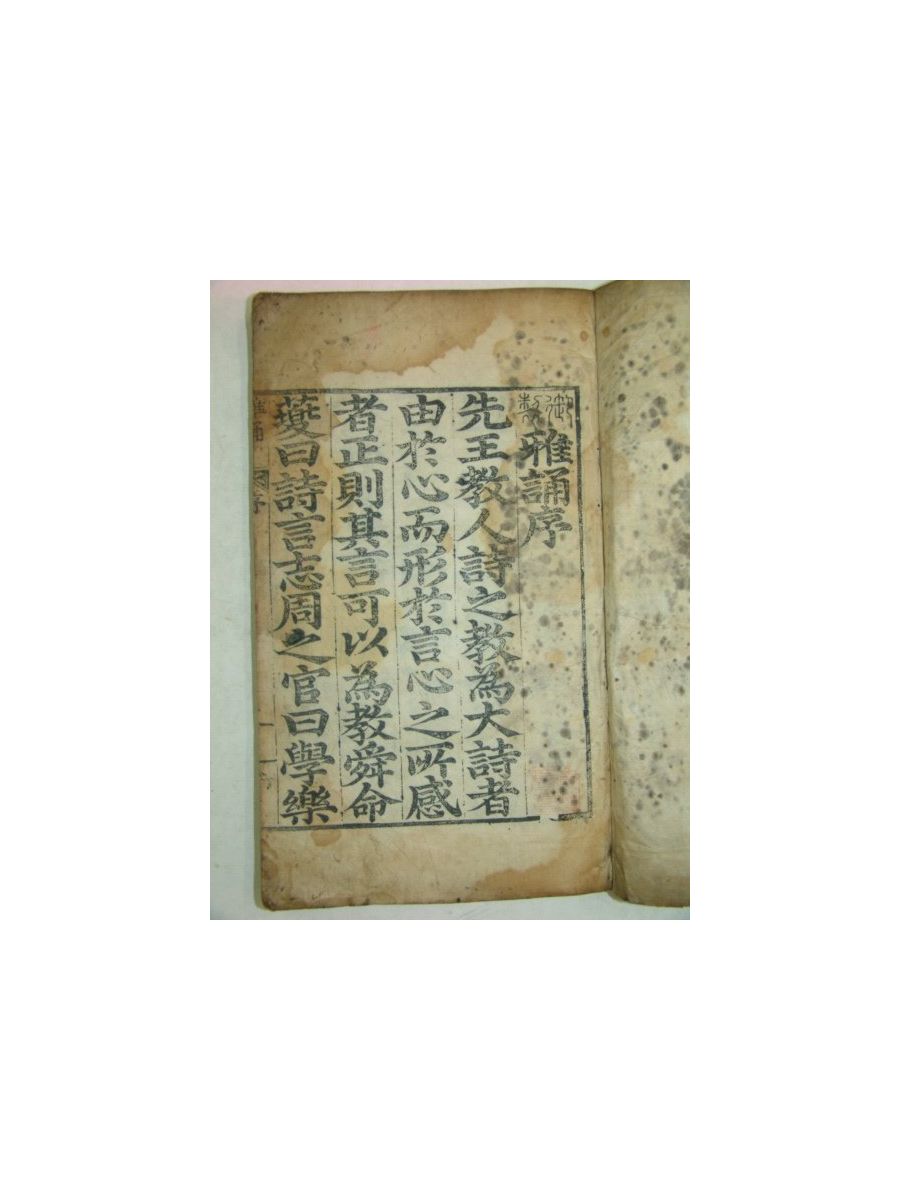 御製雅誦序
先王教人詩之教為大詩者
由於心而形於言心之所感
者正則其言可以為教舜命
夔曰詩言志周之官曰學樂
雅誦
序